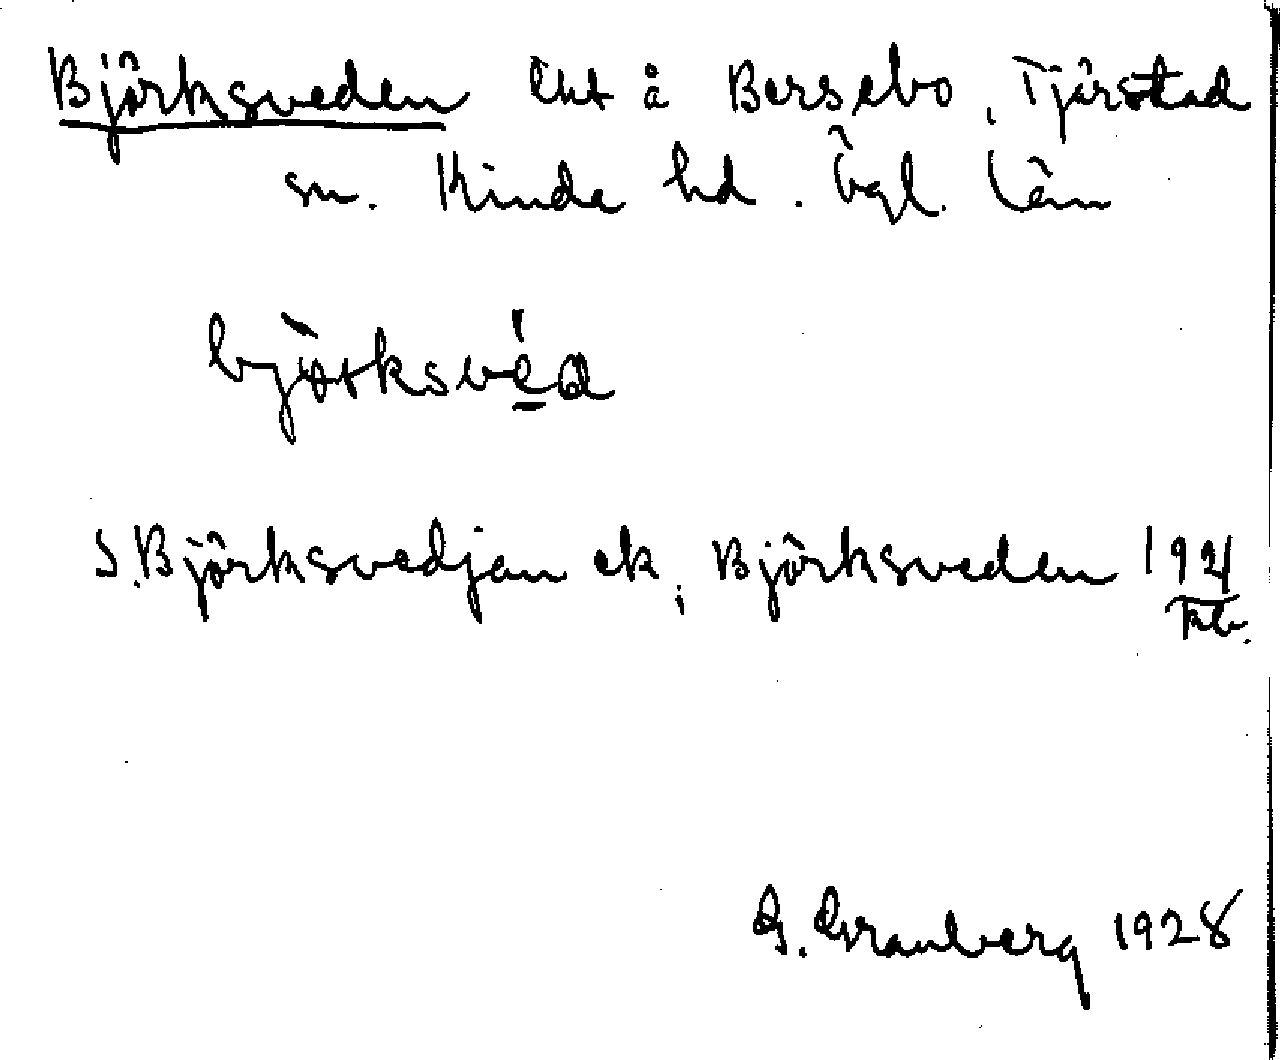 Björksveden lht å Bersebo, Tjärstad
sn. Kinda hd. Ögl. län
björksvéd
S. Björksvedjan ek; Björksveden 1921
Kb.
G. Granberg 1928